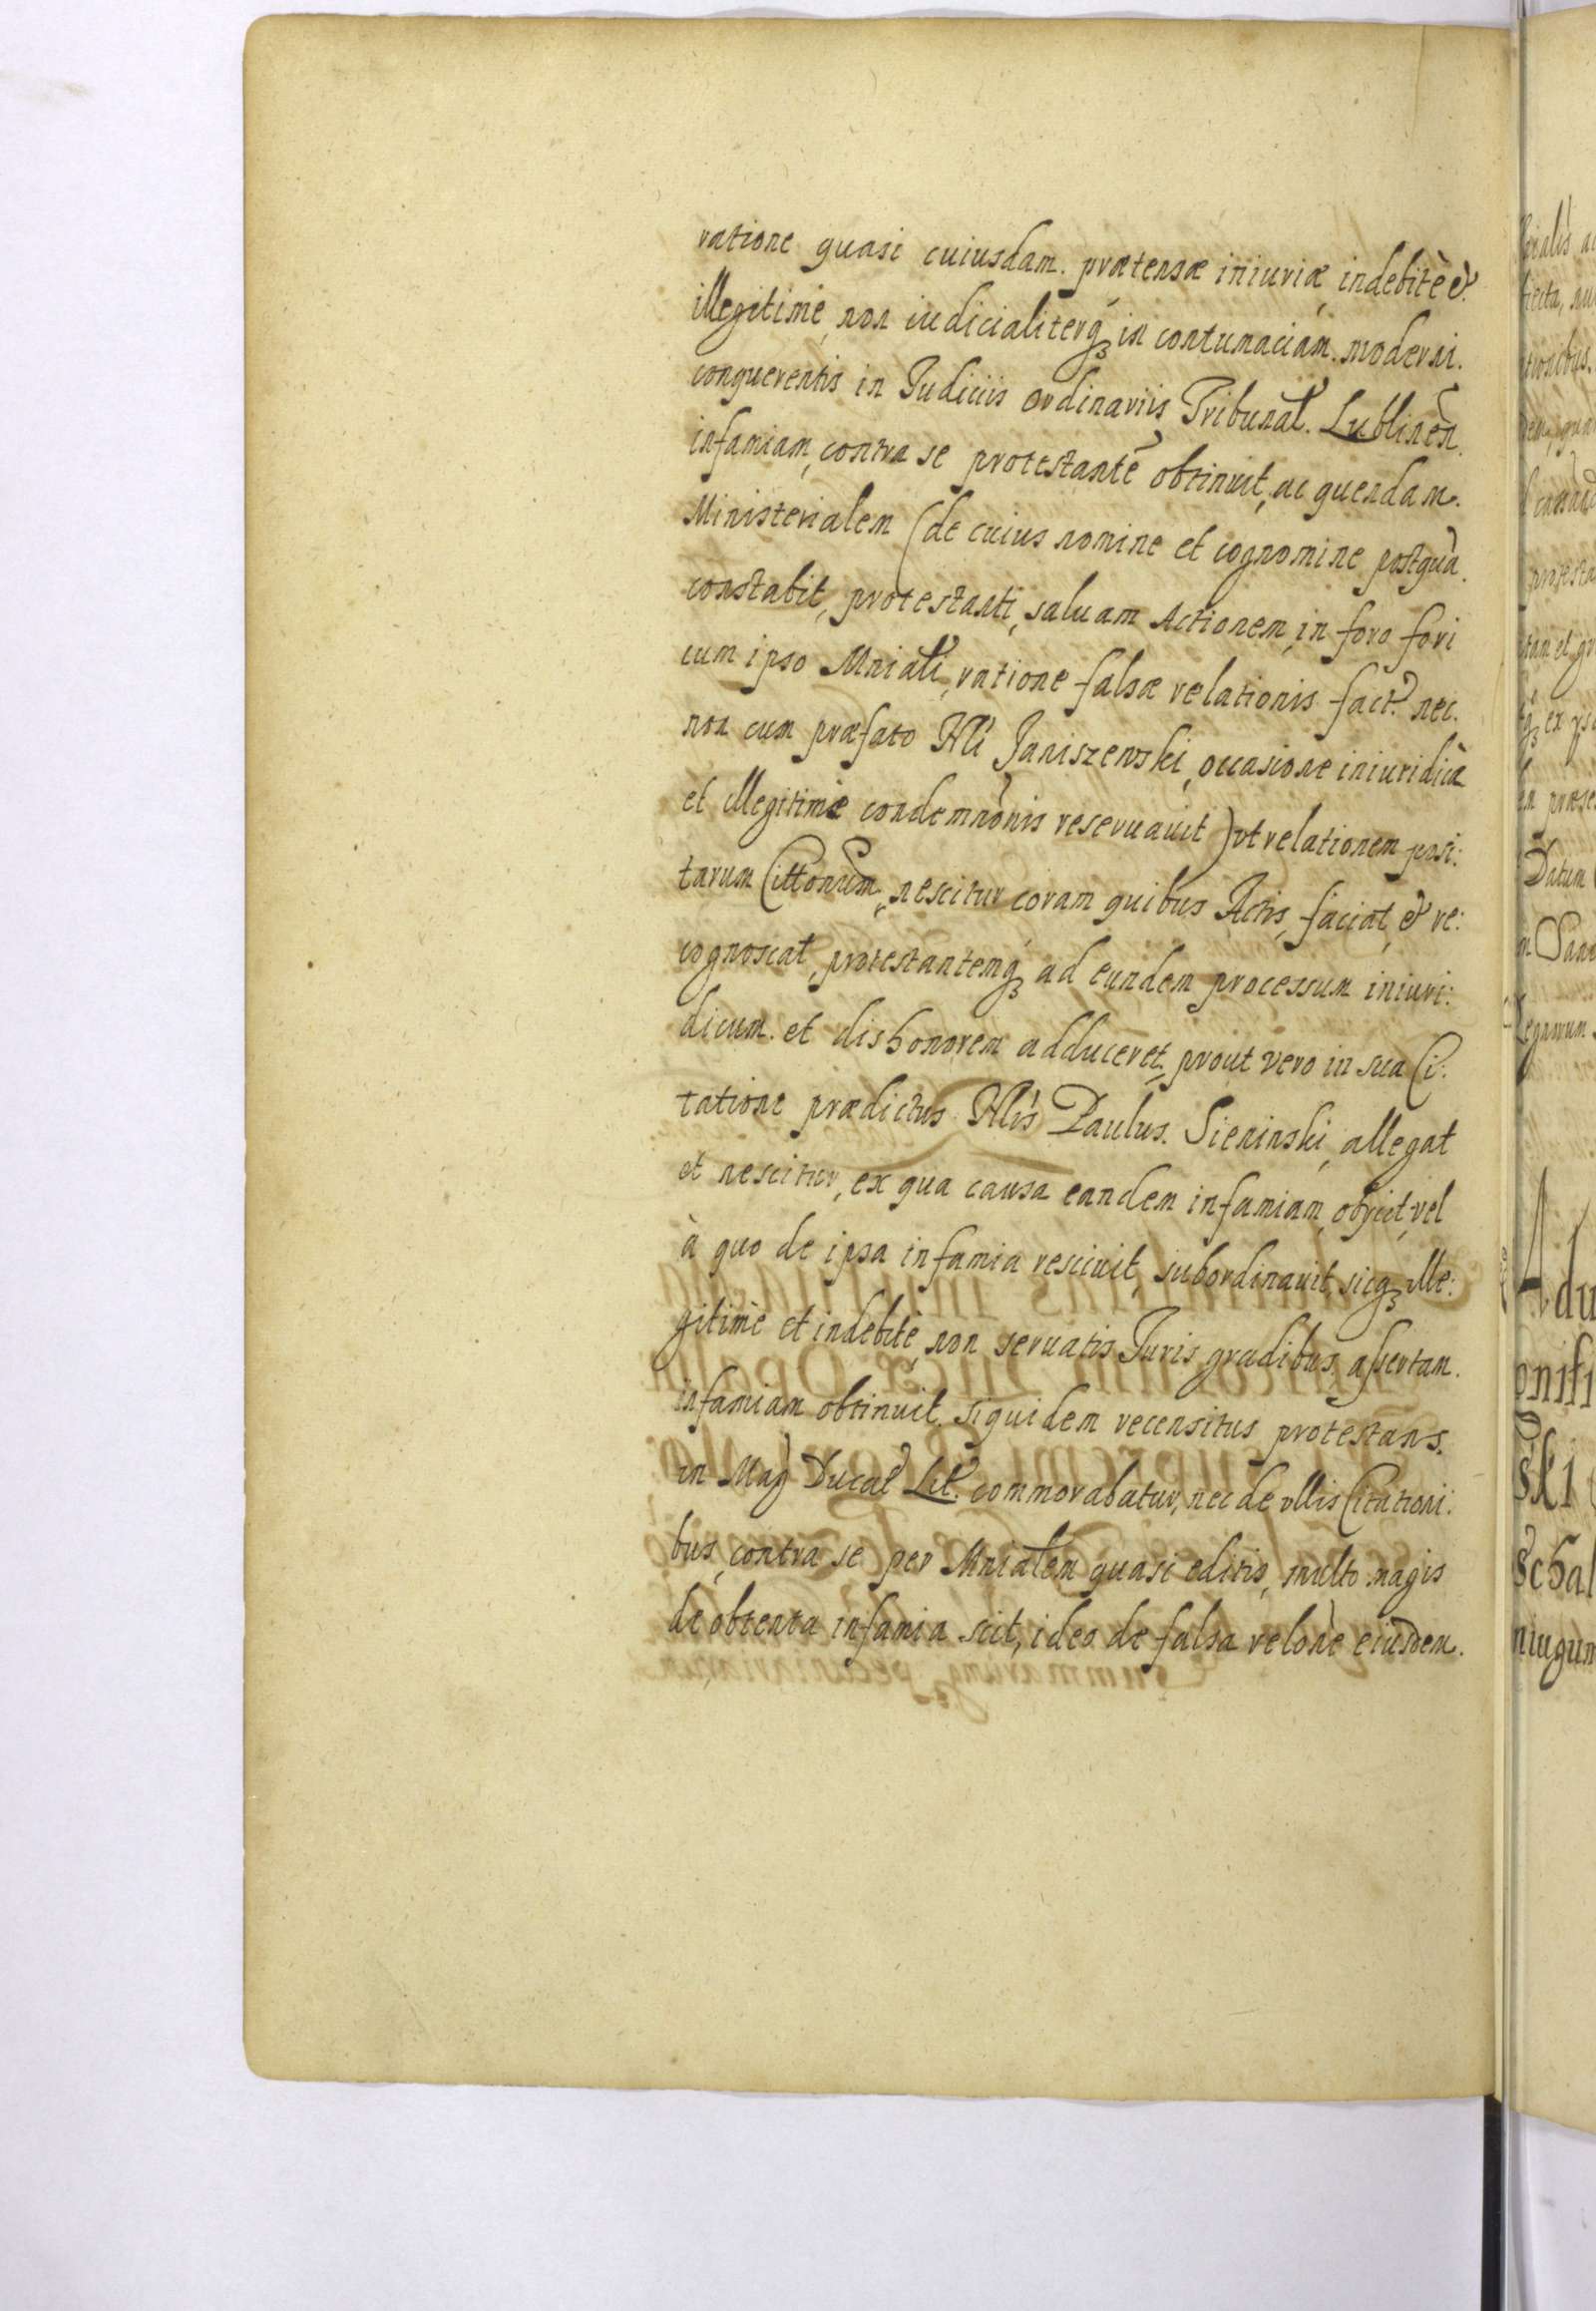 ratione quasi cuiusdam. prætensæ iniuriæ, indebitè &
illegitimè, non iudicialiterq́ꝫ in contumaciam. moderni.
conquerentis in Judiciis ordinariis Tribunal̃. Lublinen̄.
infamiam, contra se protestantē obtinuit, ac quendam.
Ministerialem (de cuius nomine et cognomine postquā.
constabit, protestanti, saluam Actionem, in foro fori
cum ipso Mniali, ratione falsæ relationis fact̃. nec.
non cum præfato Hli Janiszewski, occasione iniuridicæ
et illegitimæ condemnõnis reseruauit) vt relationem posi:
tarum Cittonum, nescitur coram quibus Actis, faciat, & re:
cognoscat, protestantemq́ꝫ ad eundem processum iniuri:
dicum. et dishonorem adduceret, prout vero in sua Ci:
tatione prædictus Hlis Paulus. Sieninski, allegat
et nescitur, ex qua causa eandem infamiam, obijcit, vel
à quo de ipsa infamia resciuit, subordinauit, sicqꝫ ille:
gitimè et indebitè, non seruatis Juris gradibus. assertam.
infamiam obtinuit. siquidem recensitus protestans.
in Mag̃ Ducat̃ Lit̃. commorabatur, nec de vllis Citationi:
bus, contra se per Mnialem quasi editis, multo magis
de obtenta infamia scit, ideo de falsa relõne eiusdem.
Datum
Adu
onifi
ski
schal
niugum